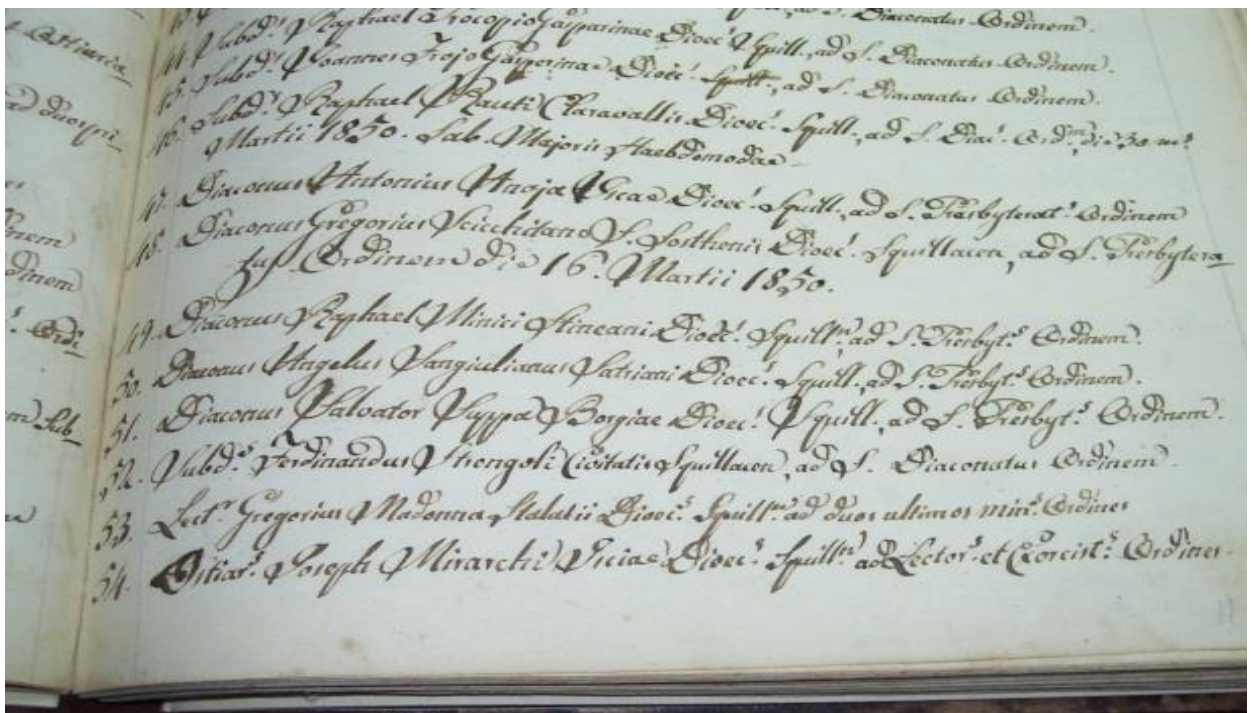 ad S. Diaconatus Ordinem.
44. Subd.s Raphael Procopio Gasparinae Dioec. Squill., ad S. Diaconatus Ordinem.
45. Subd.s Joannes Frojo Gasperinae Dioec. Squill., ad S. Diaconatus Ordinem.
46. Subd.s Raphael Rauti Claravallis Dioec. Squill., ad S. Diac. Ord.m, die 30 m.s
Martii 1850. Sab. Majoris Haebdomodae
47. Diaconus Antonius Dioec. Squill., ad S. Praesbyterat.s Ordinem
48. Diaconus Gregorius Scicchitano S. Sosthenis Dioec. Squillacen, ad S. Praesbytera
tus Ordinem die 16. Martii 1850.
49. Diaconus Raphael Minici Dioec. Squill.n ad S. Praesbyt.s Ordinem.
50. Diaconus Angelus Sangiulianus Satriani Dioec. Squill., ad S. Praesbyt.s Ordinem.
51. Diaconus Salvator Suppa Borgiae Dioec. Squill., ad S. Praesbyt.s Ordinem.
52. Subd.s Ferdinandus Strongoli Civitatis Squillacen, ad S. Diaconatus Ordinem.
53. Lect.r Gregorius Madonna Stalatii Dioec.s Squill.n ad duos ultimos min.s Ordines
54. Ostiar.s Joseph Mirarchi Dioec.s Squill.n ad Lector.s et Exorcist.s Ordines.
Ostiaria
ad duos pri
Ordinem
Ordinem
Ordi
Sub